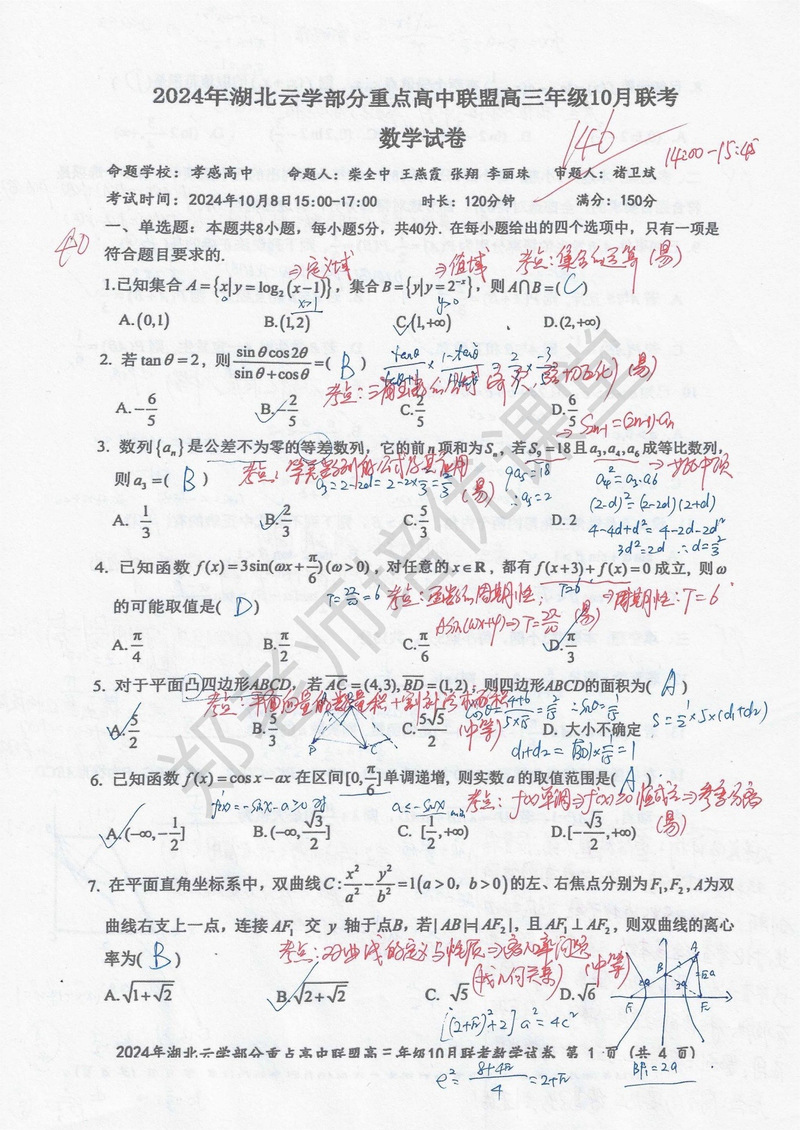 2024年湖北云学部分重点高中联盟高三年级10月联考
数学试卷
140
14:00-15:45
命题学校：孝感高中 命题人：柴全中 王燕霞 张翔 李丽珠 审题人：褚卫斌
考试时间：2024年10月8日15:00-17:00 时长：120分钟 满分：150分
40
一、单选题：本题共8小题，每小题5分，共40分. 在每小题给出的四个选项中，只有一项是
符合题目要求的.
⇒定义域 ⇒值域 考点：集合的运算（易）
1.已知集合 A={x|y=log₂(x−1)}，集合 B={y|y=2⁻ˣ}，则 A∩B=(C)
x>1 y>0
A.(0,1) B.(1,2) C.(1,+∞) D.(2,+∞)
2. 若 tanθ=2，则 (sinθcos2θ)/(sinθ+cosθ)=( B )
A. −6/5 B. −2/5 C. 2/5 D. 6/5
3. 数列{aₙ}是公差不为零的等差数列，它的前n项和为Sₙ，若S₉=18且a₃,a₄,a₆成等比数列，
则 a₃=( B ) 考点：等差数列的公式及其应用（易）
a₃=2-2d=2-2×2/3=2/3
9a₅=18
∴a₅=2
⇒等比中项
a₄²=a₃·a₆
(2-d)²=(2-2d)(2+d)
4-4d+d²=4-2d-2d²
3d²=2d ∴d=2/3
A. 1/3 B. 2/3 C. 5/3 D. 2
4. 已知函数 f(x)=3sin(ωx+π/6)(ω>0)，对任意的 x∈R，都有 f(x+3)+f(x)=0 成立，则ω
的可能取值是( D ) T=2π/ω=6 考点：函数的周期性； T=6 ⇒周期性：T=6
Asin(ωx+φ)⇒T=2π/ω（易）
A. π/4 B. π/2 C. π/6 D. π/3
5. 对于平面凸四边形ABCD，若 AC=(4,3), BD=(1,2)，则四边形ABCD的面积为( A )
S=½×5×(d₁+d₂)
（中等）
A. 5/2 B. 5/3 C. 5√5/2 D. 大小不确定
6. 已知函数 f(x)=cosx−ax 在区间[0,π/6]单调递增，则实数a的取值范围是( A )
f'(x)=-sinx-a≥0 a≤-sinx min 考点：f(x)单调⇒f'(x)≥0恒成立⇒参变分离
（易）
A.(−∞,−1/2] B.(−∞,−√3/2] C. [−1/2,+∞) D.[−√3/2,+∞)
7. 在平面直角坐标系中，双曲线C: x²/a²−y²/b²=1(a>0，b>0)的左、右焦点分别为F₁,F₂,A为双
曲线右支上一点，连接 AF₁ 交 y 轴于点B，若|AB|=|AF₂|，且AF₁⊥AF₂，则双曲线的离心
率为( B ) 考点：双曲线的定义与性质⇒离心率问题
（找几何关系）（中等）
A.√(1+√2) B.√(2+√2) C. √5 D.√6
[(2+√2)²+2]a²=4c²
2024年湖北云学部分重点高中联盟高三年级10月联考数学试卷 第 1 页（共 4 页）
e²=(8+4√2)/4=2+√2
BF₁=2a
郑老师培优课堂